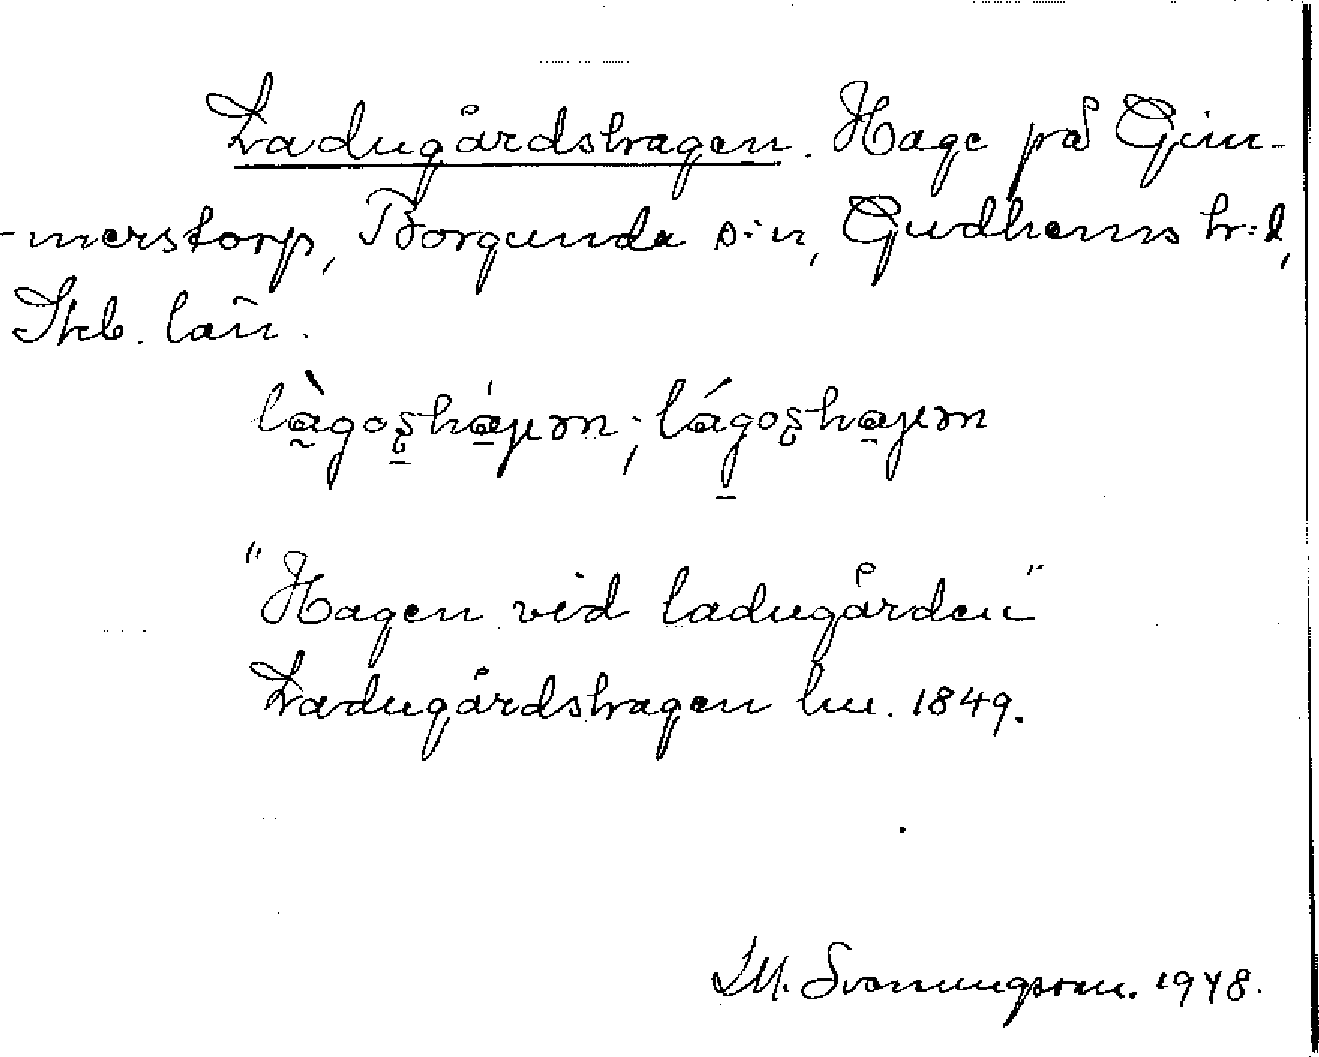 Ladugårdshagen. Hage på Gim-
-merstorp, Borgunda s:n, Gudhems hr:d,
Skb. län.
là̰goşhájen; lágoşhajen
"Hagen vid ladugården"
Ladugårdshagen lm. 1849.
M. Svenningsson. 1948.